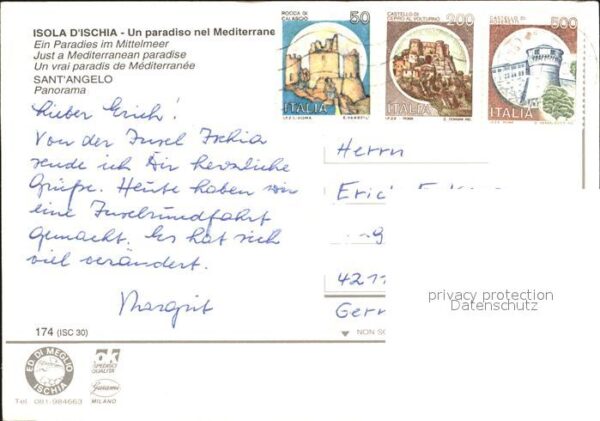 ISOLA D'ISCHIA - Un paradiso nel Mediterrane
Ein Paradies im Mittelmeer
Just a Mediterranean paradise
Un vrai paradis de Méditerranée
SANT'ANGELO
Panorama
ROCCA DI CALASCIO
50
ITALIA
CASTELLO DI CERRO AL VOLTURNO
200
ITALIA
CASTELLO DI
500
ITALIA
Lieber Erich!
Von der Insel Ischia
sende ich Dir herzliche
Grüße. Heute haben wir
eine Inselrundfahrt
gemacht. Es hat sich
viel verändert.
Margrit
Herrn
Eric
4211
Gerr
privacy protection
Datenschutz
174 (ISC 30)
NON SC
ED. DI MEGLIO
ISCHIA
Tel. 081-984663
ok
SPECIMO
QUALITÀ
Garami
MILANO